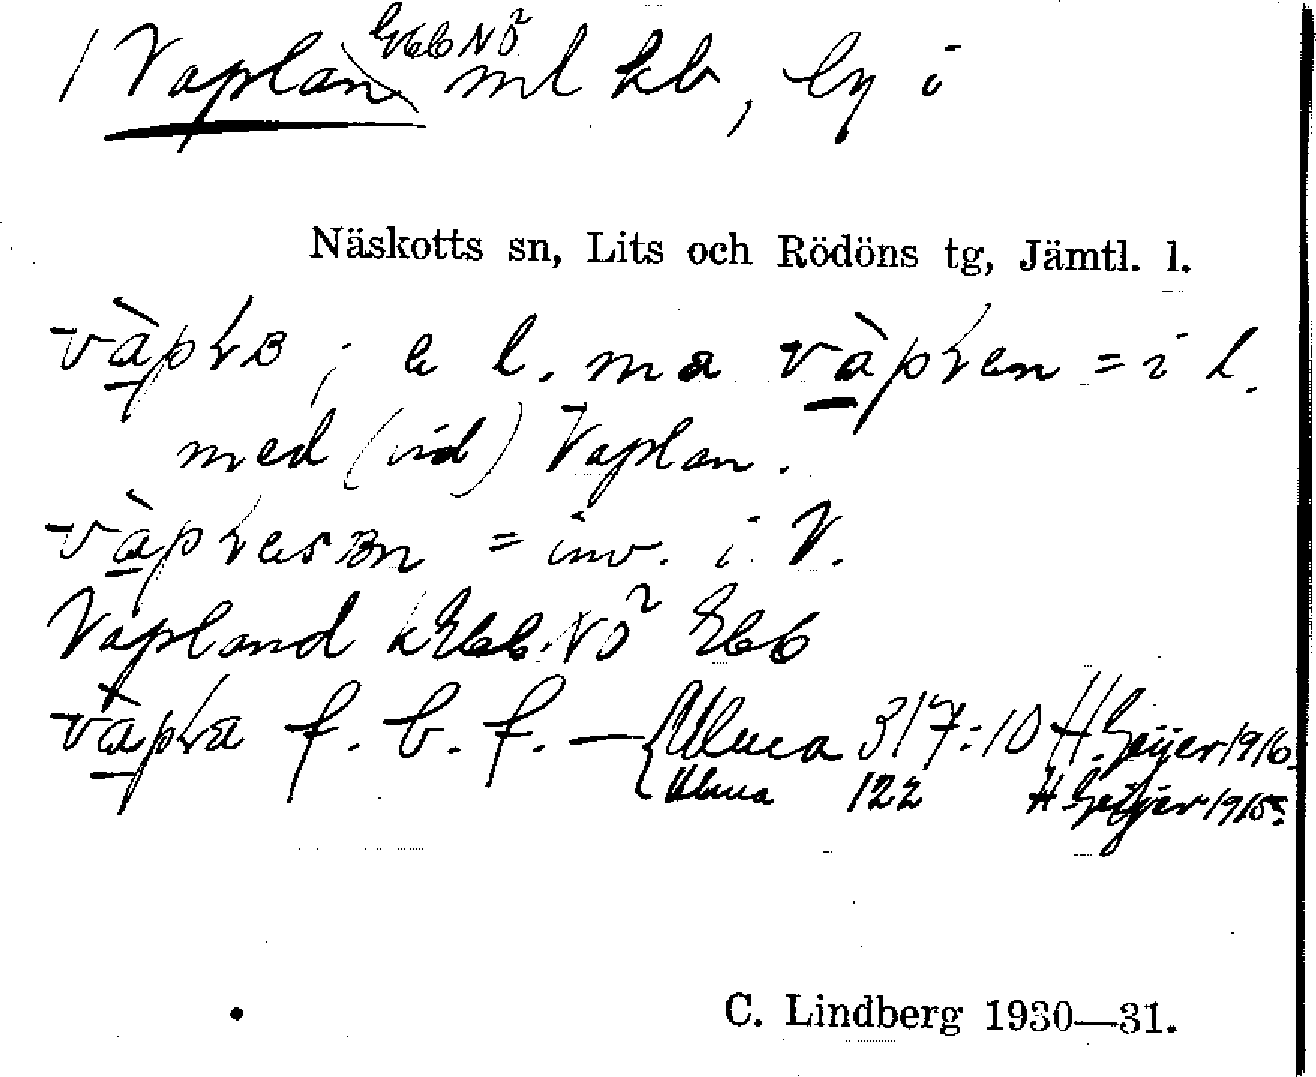 Vaplan EbbNö² ml kb, by i
Näskotts sn, Lits och Rödöns tg, Jämtl. l.
; e l. ma = i l.
med (vid) Vaplan.
= inv. i V.
Vapland k EbbNö² Ebb
f. b. f. — Ulma 317:10 H. Geijer 1916.
Ulma 122 H Geijer 1915
C. Lindberg 1930—31.